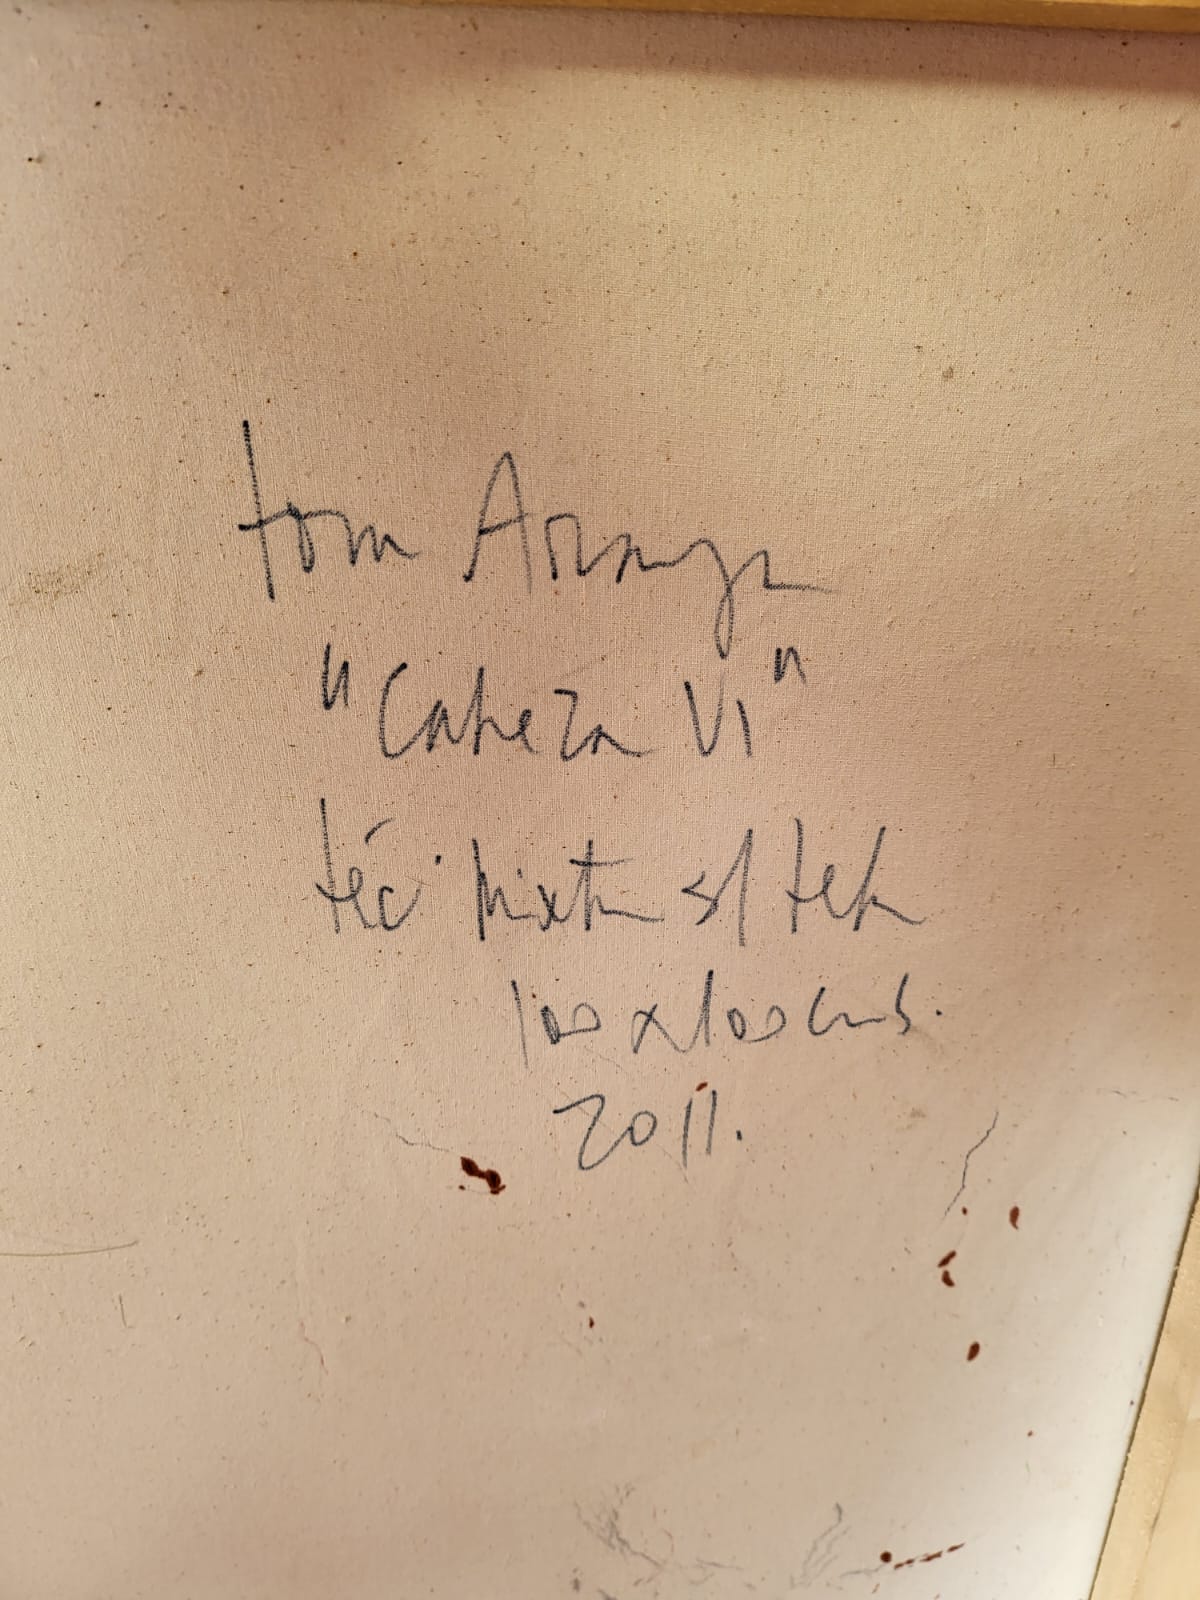 tom Araya
"Cabeza VI"
téc. mixta s/ tela
100 x 100 cms.
2011.